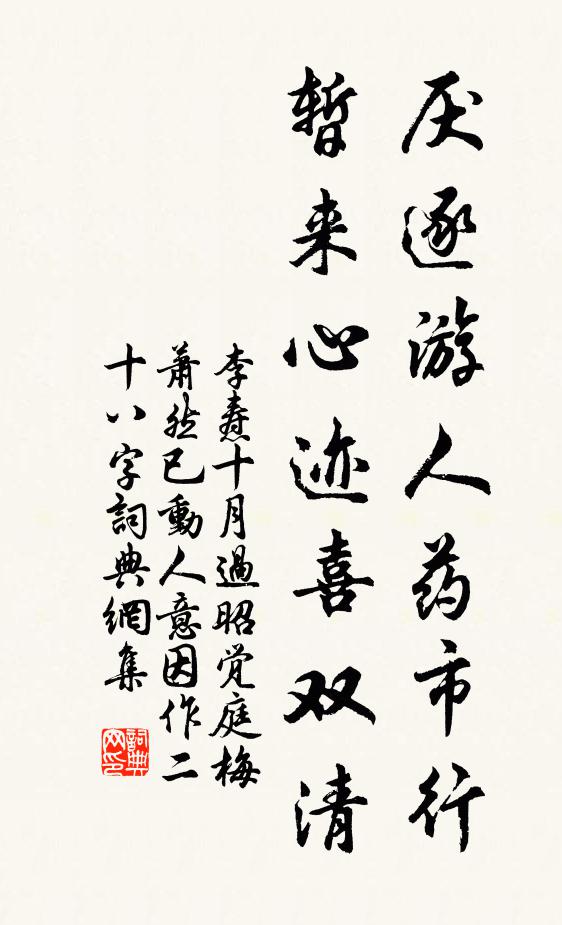 厌逐游人药市行
暂来心迹喜双清
李焘十月過昭觉庭梅
萧然已動人意因作二
十八字詞典網集
詞典网印